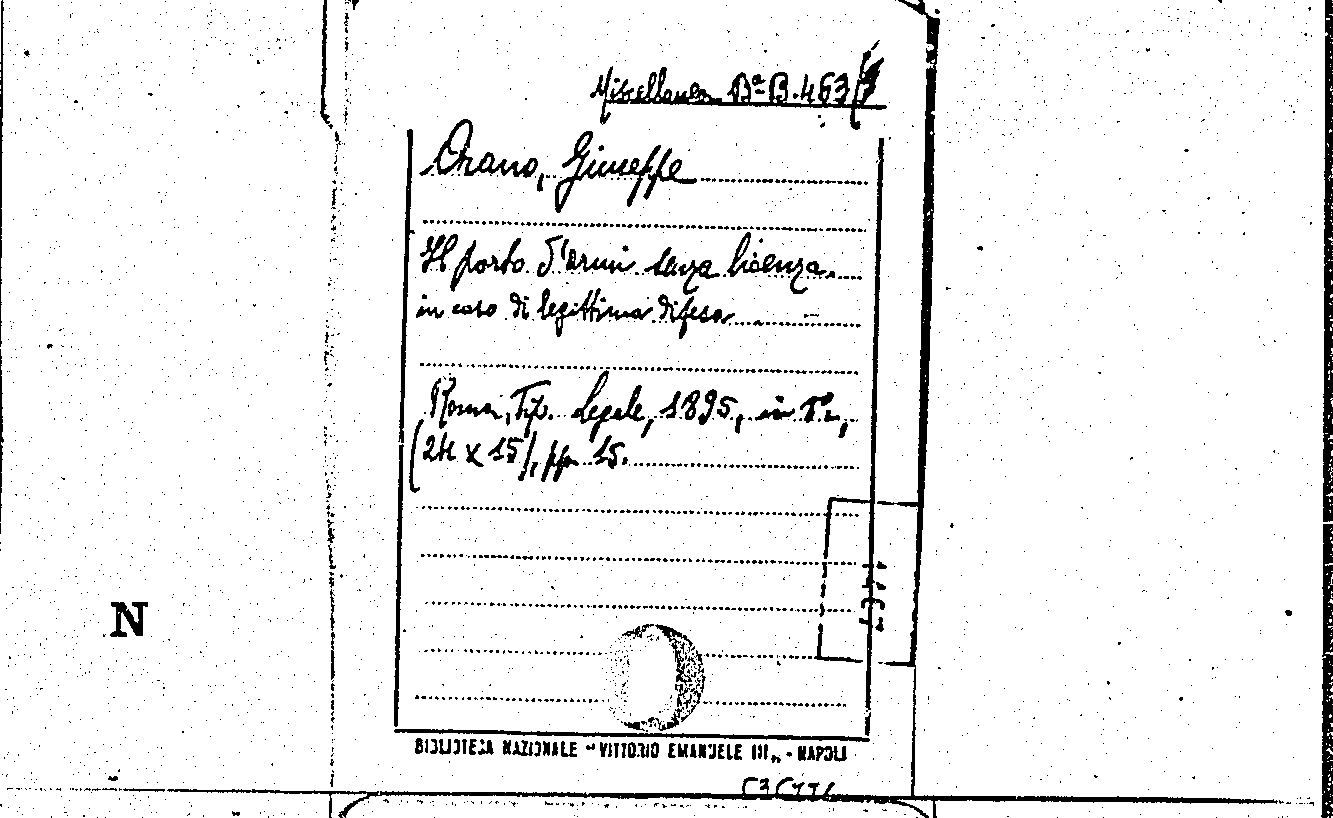 Miscellanea Bª B.463/
Orano, Giuseppe
Il porto d'armi senza licenza
in caso di legittima difesa
Roma, Tip. Legale, 1895, in 8°,
(24 x 15), pp. 15.
N
BIBLIOTECA NAZIONALE "VITTORIO EMANUELE III„ - NAPOLI